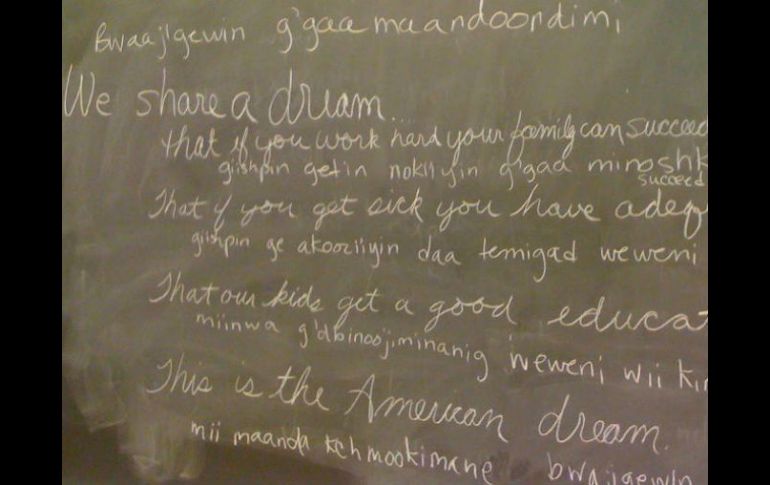 Bwaaj'gewin g'gaa maandoondimi
We share a dream...
that if you work hard your family can succeed
giishpin getin nokiiyin g'gaa minoshk
succeed
That if you get sick you have adeq
giishpin ge akooziiyin daa temigad weweni
That our kids get a good educat
miinwa g'dbinoojiiminanig weweni wii kin
This is the American dream.
mii maanda kchmookimane bwajigewin